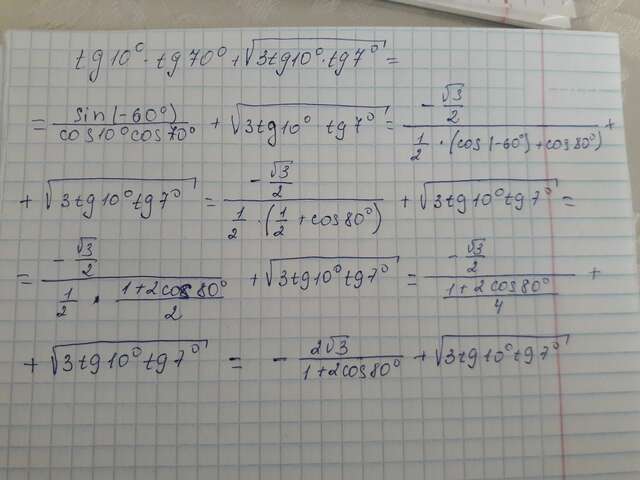 tg10°·tg70°+√3tg10°·tg7° =
= sin(-60°)/cos10°cos70° + √3tg10° tg7° = -√3/2 / 1/2·(cos(-60°)+cos80°) +
+ √3tg10°tg7° = -√3/2 / 1/2·(1/2+cos80°) + √3tg10°tg7° =
= -√3/2 / 1/2 · 1+2cos80°/2 + √3tg10°tg7° = -√3/2 / 1+2cos80°/4 +
+ √3tg10°tg7° = - 2√3/1+2cos80° + √3tg10°tg7°